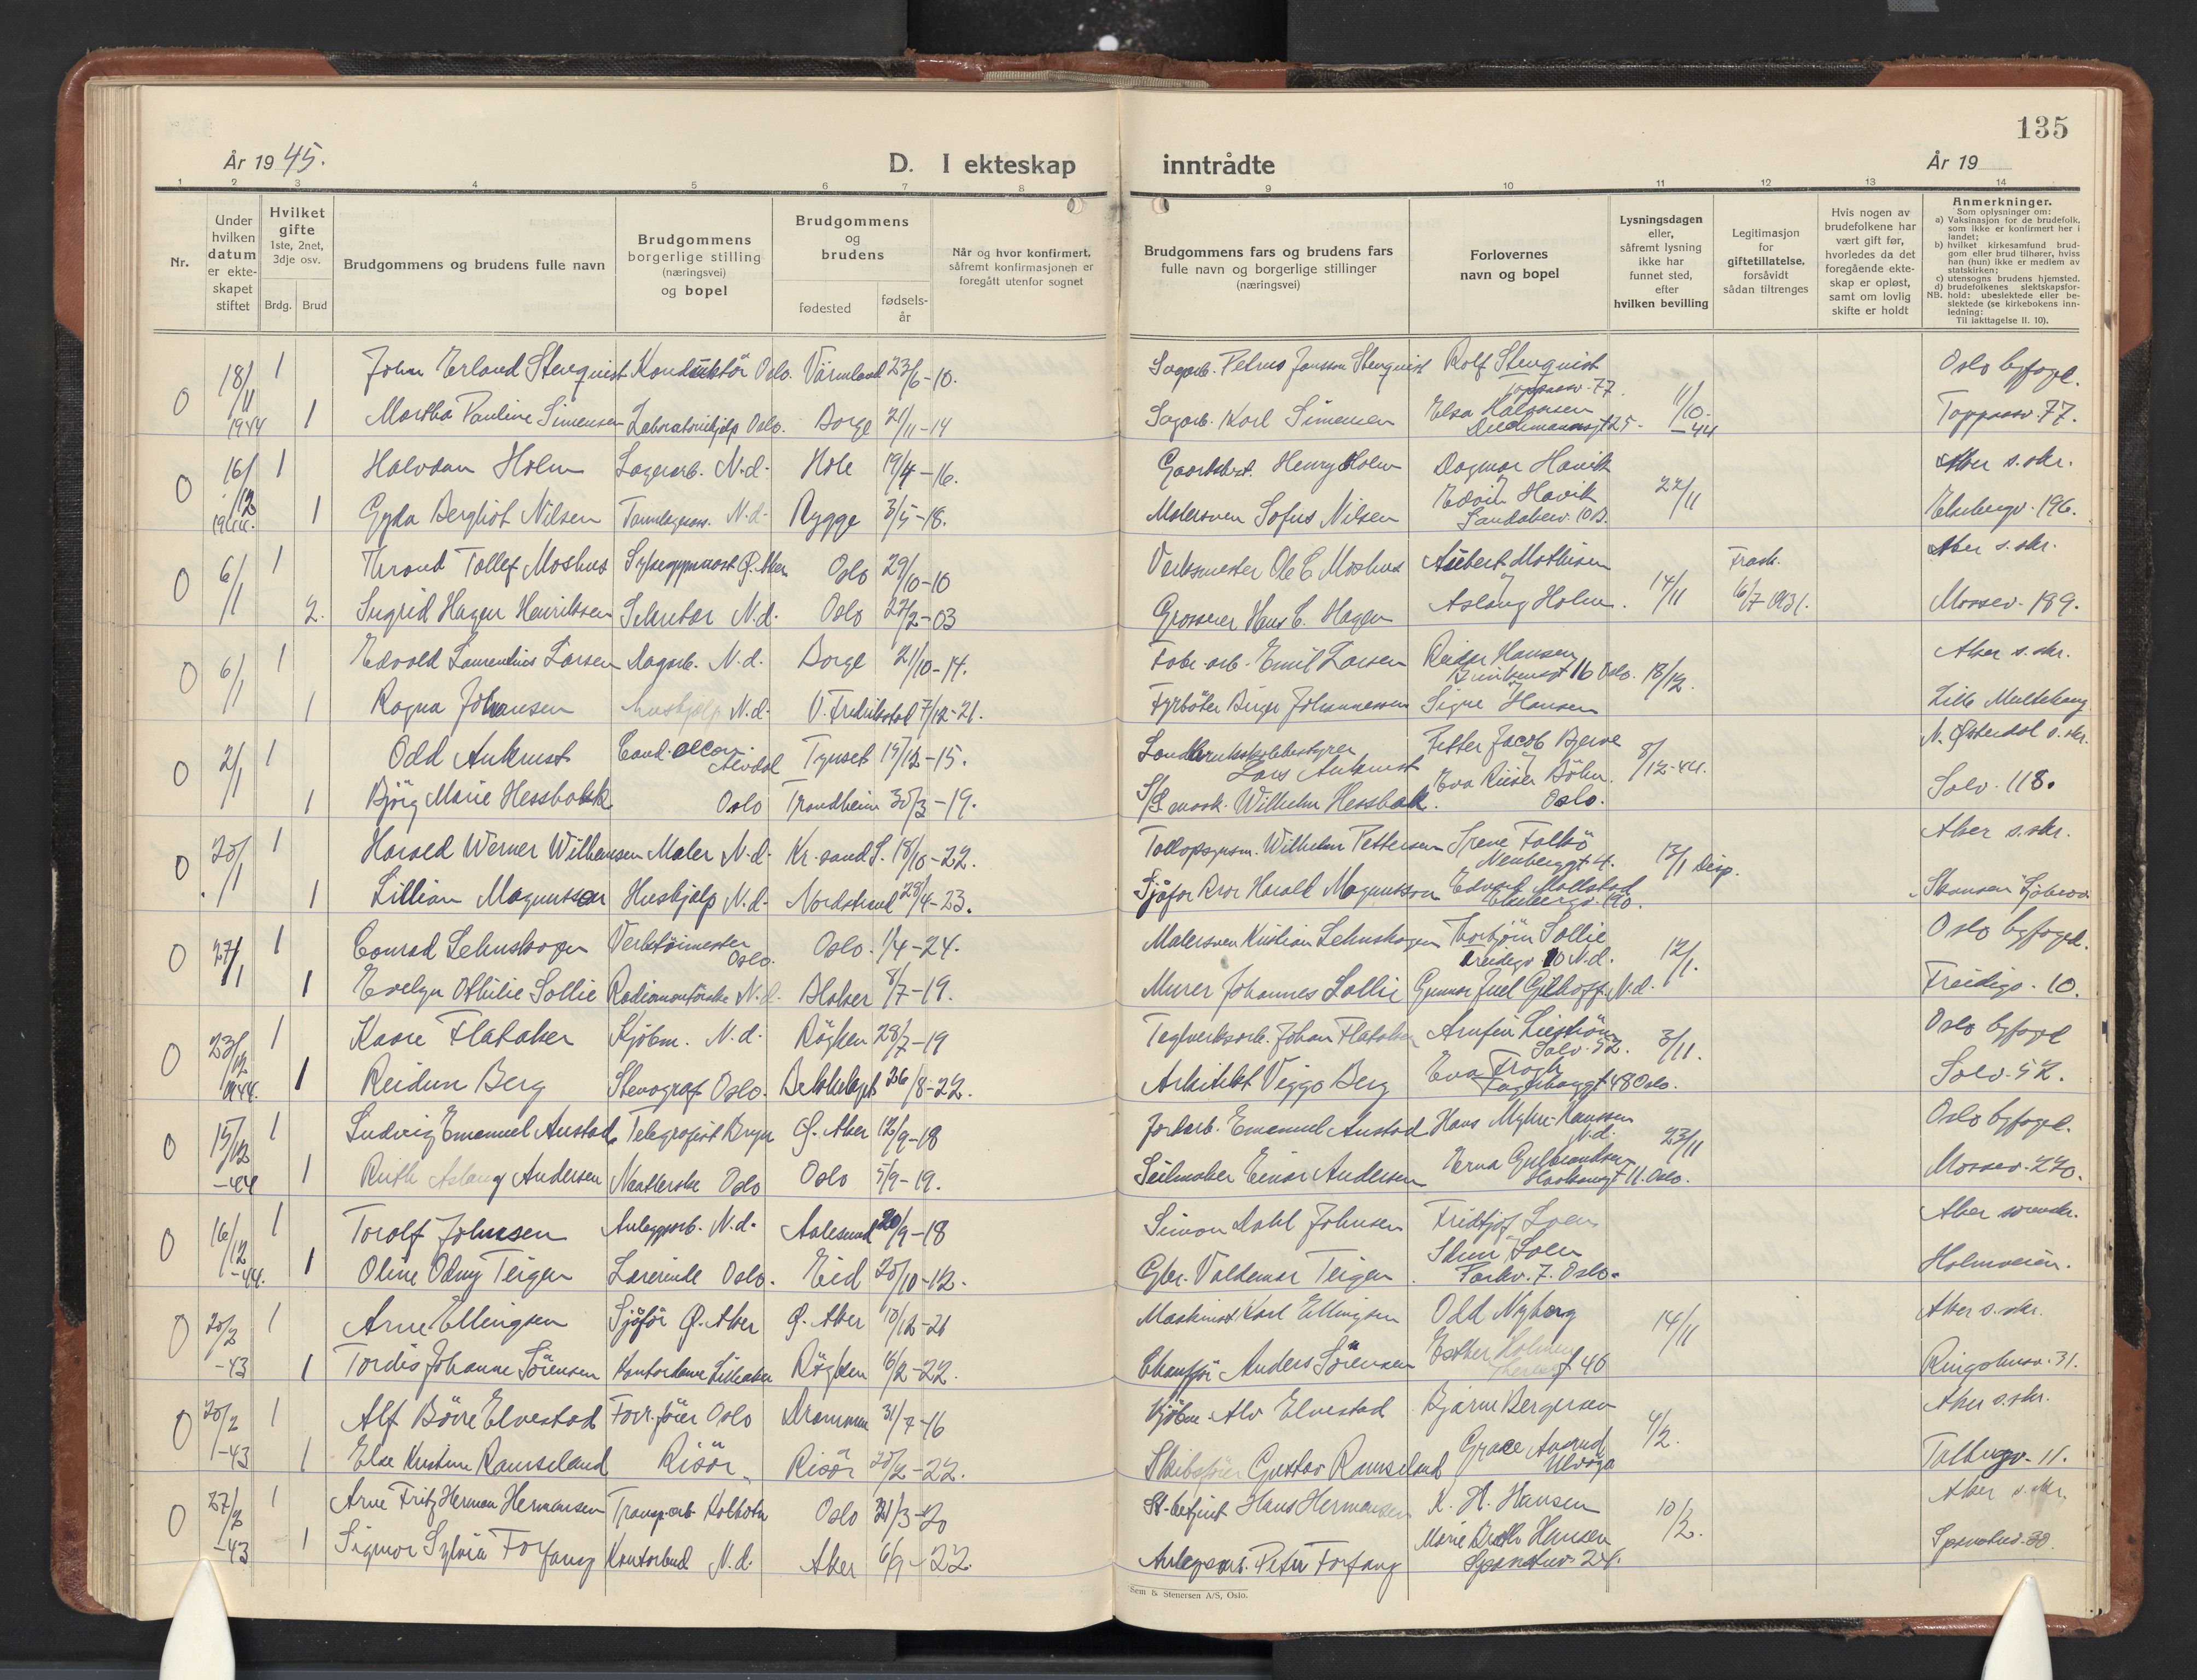 135
År 1945.
D. I ekteskap inntrådte
År 19
1 2 3 4 5 6 7 8 9 10 11 12 13 14
Nr.
Under
hvilken
datum
er ekte-
skapet
stiftet
Hvilket
gifte
1ste, 2net,
3dje osv.
Brdg. Brud
Brudgommens og brudens fulle navn
Brudgommens
borgerlige stilling
(næringsvei)
og bopel
Brudgommens
og
brudens
fødested
fødsels-
år
Når og hvor konfirmert,
såfremt konfirmasjonen er
foregått utenfor sognet
Brudgommens fars og brudens fars
fulle navn og borgerlige stillinger
(næringsvei)
Forlovernes
navn og bopel
Lysningsdagen
eller,
såfremt lysning
ikke har
funnet sted,
efter
hvilken bevilling
Legitimasjon
for
giftetillatelse,
forsåvidt
sådan tiltrenges
Hvis nogen av
brudefolkene har
vært gift før,
hvorledes da det
foregående ekte-
skap er opløst,
samt om lovlig
skifte er holdt
Anmerkninger.
Som oplysninger om:
a) Vaksinasjon for de brudefolk,
som ikke er konfirmert her i
landet;
b) hvilket kirkesamfund brud-
gom eller brud tilhører, hviss
han (hun) ikke er medlem av
statskirken;
c) utensogns brudens hjemsted.
d) brudefolkenes slektskapsfor-
NB. hold: ubeslektede eller be-
slektede (se kirkebokens inn-
ledning:
Til iakttagelse II. 10).
0 18/11 1944 1 John Erland Stenquist Konduktör Oslo. Värmland 23/6-10. Sagarb. Petrus Jansson Stenquist Rolf Stenquist
Toppåsv. 77 11/10-44 Oslo byfoged.
1 Martha Pauline Simensen Laboratoriehjelp Oslo. Borge 21/11-14 Sagarb. Karl Simensen Elsa Halvorsen
Deichmannsgt 25- Toppåsv. 77.
0 16/12 1944. 1 Halvdan Holm Lagerarb. N.d. Hole 19/4-16. Gaardsbest. Henry Holm Dagmar Havik 22/11 Aker s.skr.
1 Gyda Bergliot Nilsen Tannlegeass. N.d. Rygge 3/5-18. Malersven Sofus Nilsen Edvin Havik
Sandakerv. 10B. Ekebergv. 196.
0 6/1 1 Thrond Tollef Moshus Ö. Aker Oslo 29/10-10 Verksmester Ole C. Moshus Aubert Mathisen 14/11 Frask. Aker s.skr.
2. Ingrid Hagen Henriksen Sekretær N.d. Oslo 27/2-03 Grosserer Hans C. Hagen Aslaug Holm. 16/7-1931. Mossev. 189.
0 6/1 1 Edvald Laurentius Larsen Lagarb. N.d. Borge 21/10-14. Fabr.arb. Emil Larsen Reidar Hansen
16 Oslo. 18/12. Aker s.skr.
1 Ragna Johansen Hushjelp N.d. V. Fredrikstad 7/12-21. Fyrböter Birger Johannessen Signe Hansen Lille
0 2/1 1 Odd Aukrust Cand. oecon.
Alvdal Tynset 15/12-15. Landbruksskolebestyrer
Lars Aukrust Petter Jacob Bjerve 8/12-44. N. Østerdal s.skr.
1 Björg Marie Hessbakk Oslo Trondheim 30/3-19. Wilhelm Hessbakk. Eva Riiser Böhn.
Oslo. Solv. 118.
0 20/1 1 Harald Werner Wilhelmsen Maler N.d. Kr.sand S. 18/10-22. Tollopsynsm. Wilhelm Pettersen Irene Falkö
4. 13/1 Disp. Aker s.skr.
1 Lillian Magnusson Hushjelp N.d. Nordstrand 29/4-23. Sjåfør Harald Magnusson Edvard Mollstad
Ekebergv. 190.
0 27/1 1 Conrad Lehnskogen Verktöimester
Oslo. Oslo. 1/4-24. Malersven Kristian Lehnskogen Thorbjörn Sollie
Freidigv. 10 N.d. 12/1. Oslo byfoged.
1 Evelyn Othilie Sollie Radiomontörske N.d. Blaker 8/7-19. Murer Johannes Sollie Gunnar Juel N.d. Freidigv. 10.
0 23/12 1944. 1 Kaare Flataker Kjöbm. N.d. Röyken 28/7-19 Teglverksarb. Johan Flataker Arnfin
Solv. 52. 3/11. Oslo byfoged
1 Reidun Berg Stenograf Oslo. Bekkelaget 26/8-22. Arkitekt Viggo Berg Eva Frogh
48 Oslo. Solv. 52.
0 15/12-44 1 Ludvig Emanuel Austad Telegrafist Bryn Ö. Aker 12/9-18 Jordarb. Emanuel Austad Hans Myhre Hanssen
N.d. 23/11 Oslo byfoged.
1 Ruth Aslaug Andersen Nåtlerske Oslo Oslo 5/9-19. Seilmaker Einar Andersen Erna Gulbrandsen
11. Oslo. Mossev. 220.
0 16/12-44. 1 Torolf Johnsen Anleggsarb. N.d. Aalesund 20/9-18 Simon Dahl Johnsen Fridtjof Loen Aker sorenskr.
1 Oline Odny Teigen Lærerinde Oslo. Eid 20/10-12. Gbr. Valdemar Teigen. Idun Loen
Parkv. 7. Oslo. Holmveien.
0 20/2-43 1 Arne Ellingsen Sjåför Ö. Aker Ö. Aker 13/12-21 Maskinist Karl Ellingsen Odd Nyborg 14/11 Aker s.skr.
1 Tordis Johanne Sörensen Kontordame Lilleaker Röyken 16/2-22. Chaufför Anders Sörensen Esther
46 Ringshusv. 31.
0 20/2-43 1 Alf Börre Elvestad Forr.förer Oslo Drammen 31/7-16 Kjöbm. Alv Elvestad Bjarne Bergersen 4/2. Aker s.skr.
1 Else Kristine Ramseland Risör Risör 20/2-22. Skibsförer Gustav Ramseland Grace
Ulvöya 11.
0 27/2-43 1 Arne Fritz Herman Hermansen Transp.arb. Kolbotn Oslo 21/3-20 St.betjent Hans Hermansen K. H. Hansen 10/2. Aker s.skr.
1 Sigmor Sylvia Forfang Kontorbud N.d. Aker 6/9-22. Anlegsarb. Peter Forfang Marie Hansen
24.
Sem & Stenersen A/S, Oslo.